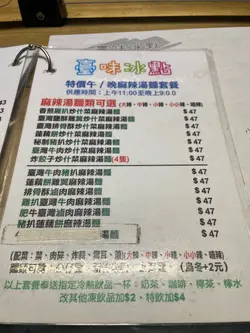 臺味冰點
特價午/晚麻辣湯麵套餐
供應時間：上午11:00至晚上9:00
麻辣湯麵類可選(大辣、中辣、小辣、小小辣、唔辣)
香煎雞扒炒什菜麻辣湯麵 $47
臺灣鹽酥雞炒什菜麻辣湯麵 $47
臺灣排骨酥炒什菜麻辣湯麵 $47
蓮藕餅炒什菜麻辣湯麵 $47
秘製豬扒炒什菜麻辣湯麵 $47
臺灣牛肉炒什菜麻辣湯麵 $47
炸餃子炒什菜麻辣湯麵(4隻) $47
臺灣牛肉麻辣湯麵 $47
蓮藕餅雞翼麻辣湯麵 $47
排骨酥滷肉麻辣湯麵 $47
雞扒臺灣牛肉麻辣湯麵 $47
肥牛臺灣滷肉麻辣湯麵 $47
豬扒蓮藕餅麻辣湯麵 $47
$47
小辣、小小辣、唔辣)
(烏冬+2元)
以上套餐奉送指定冷熱飲品一杯：奶茶、咖啡、檸茶、檸水
改其他凍飲品加$2、特飲加$4